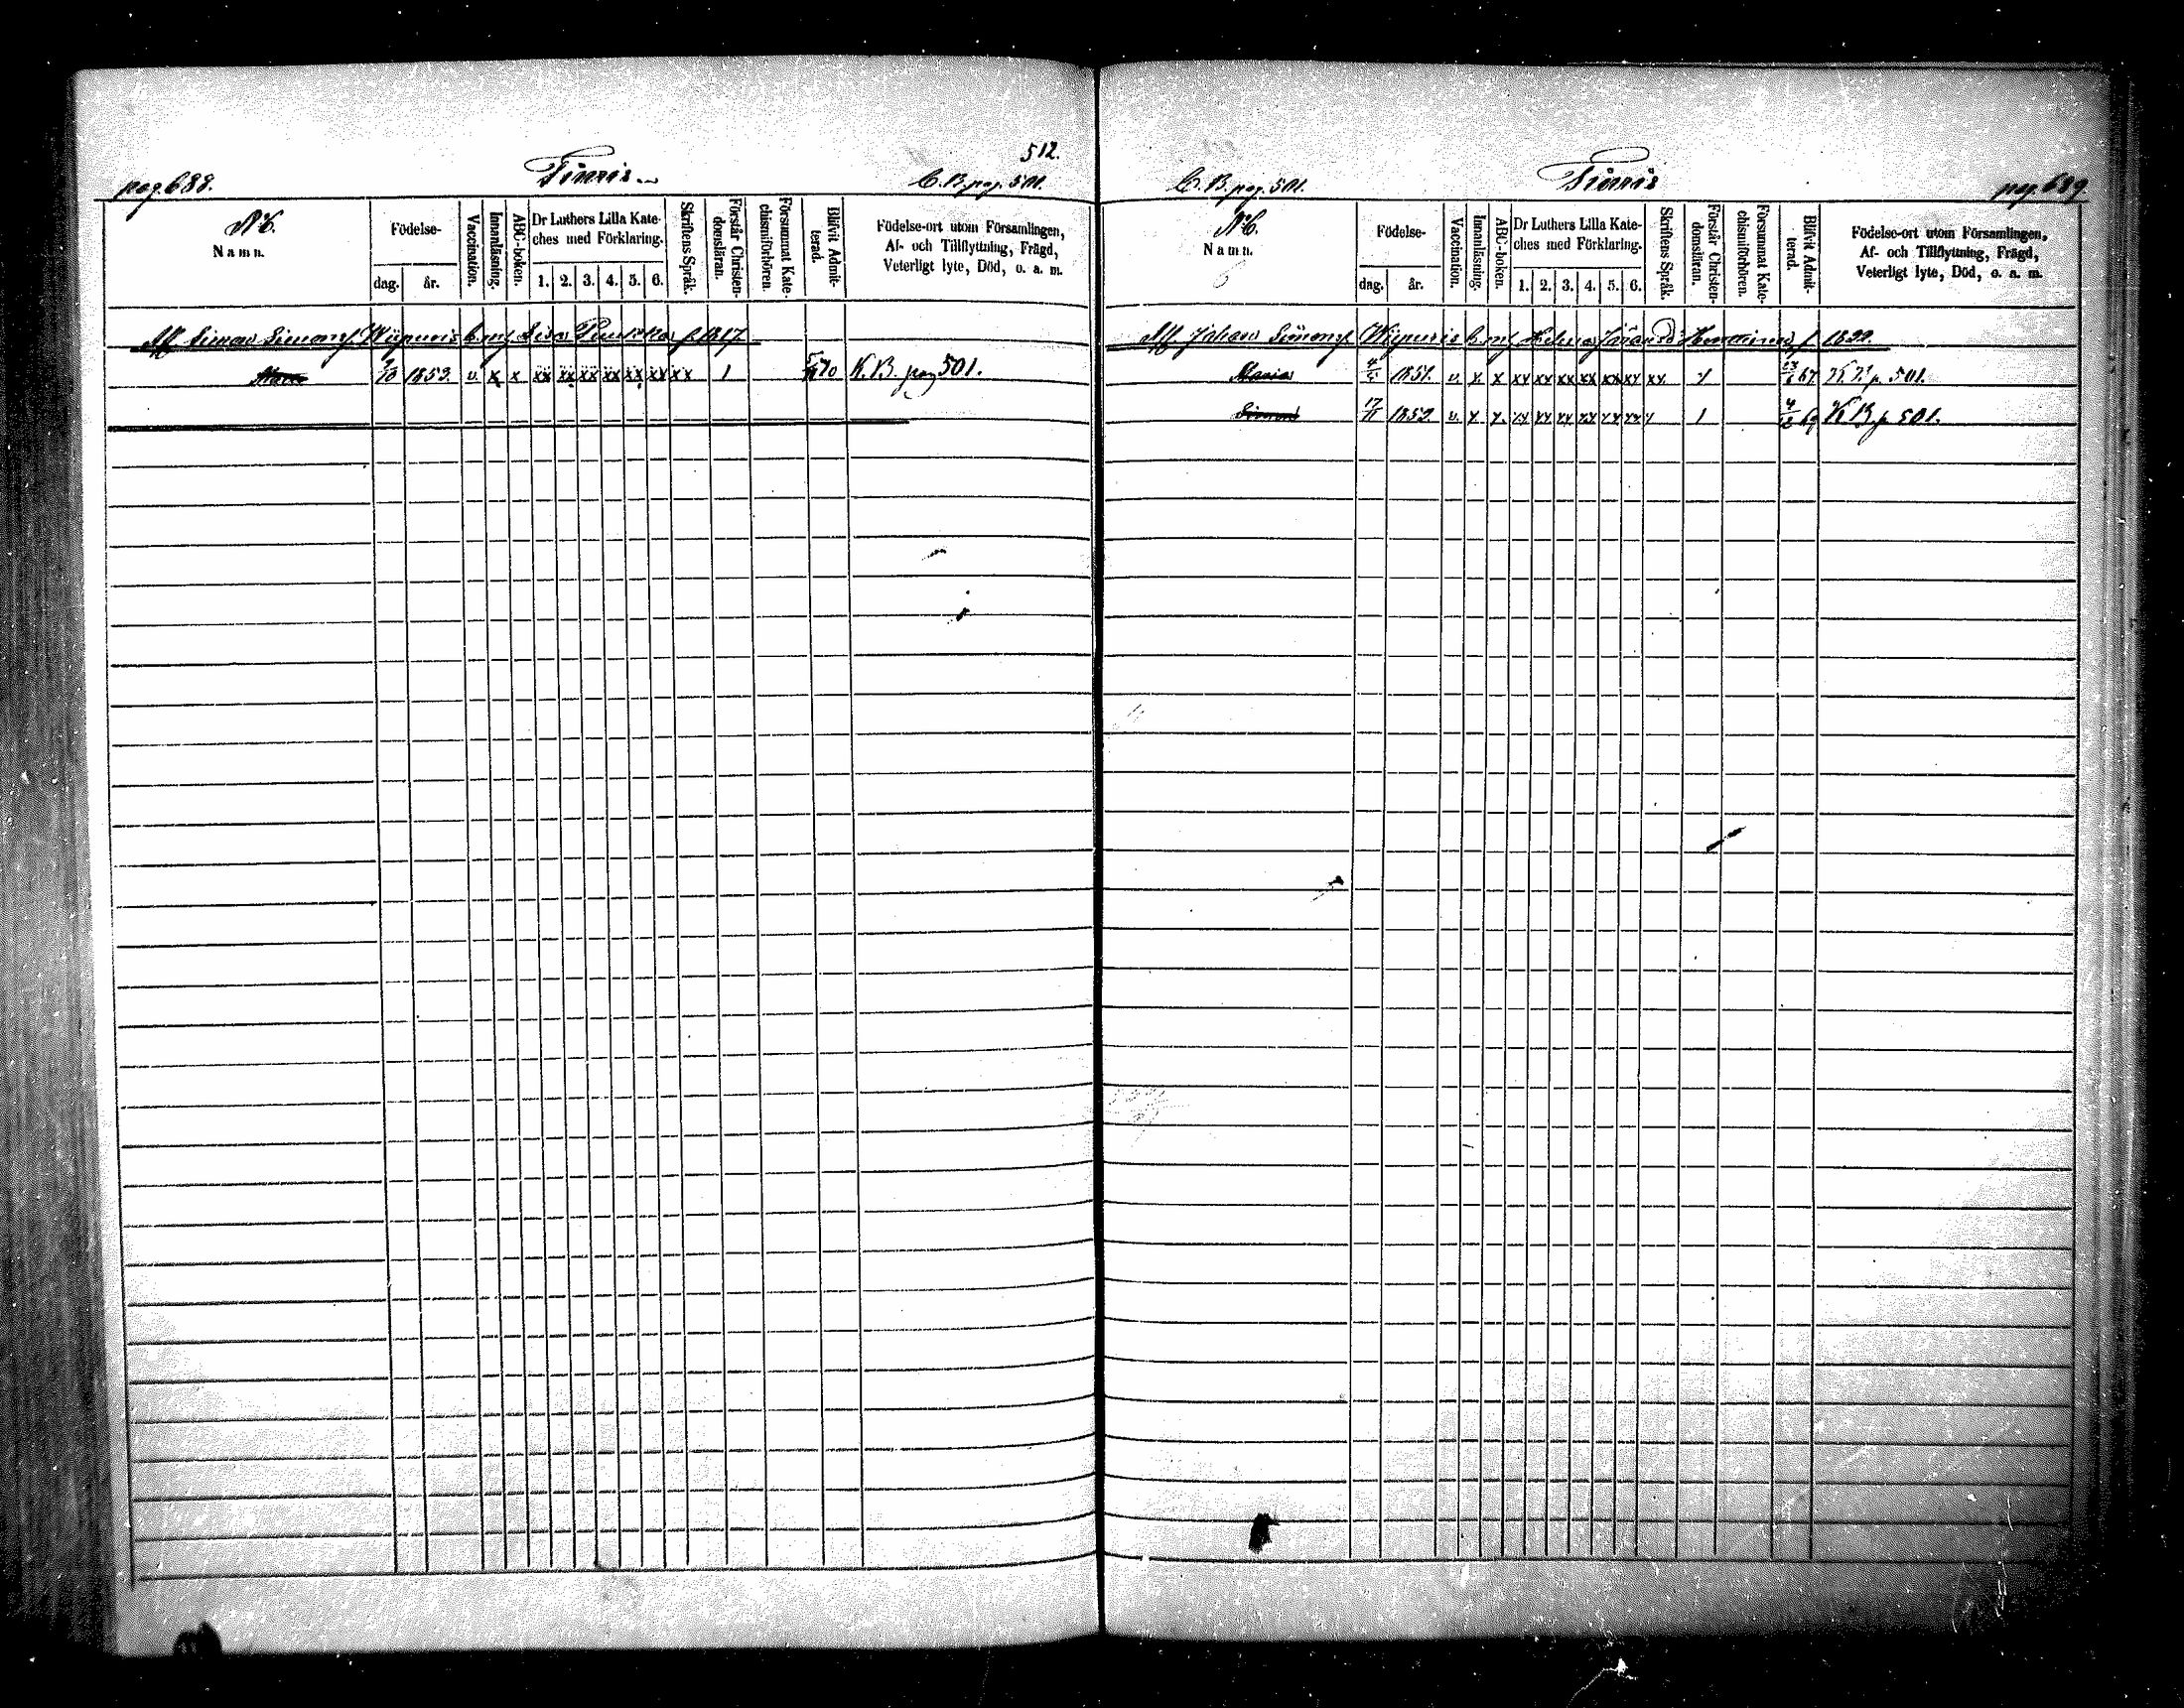 512.
pag. 688.
C. B. pag. 501.
N:o
Namn.
Födelse-
dag.
år.
Vaccination.
Innanläsning.
ABC-boken.
Dr Luthers Lilla Kate-
ches med Förklaring.
1. 2. 3. 4. 5. 6.
Skriftens Språk.
Förstår Christen-
domsläran.
Försummat Kate-
chismiförhören.
Blifvit Admit-
terad.
Födelse-ort utom Församlingen,
Af- och Tillflyttning, Frägd,
Veterligt lyte, Död, o. a. m.
Simon Simons Wiipuris Lisa f. 1817
1853. v. x x xx xx xx xx xx xx xx 1 70 K. B. pag 501.
C. B. pag. 501.
pag. 689.
N:o
Namn.
Födelse-
dag.
år.
Vaccination.
Innanläsning.
ABC-boken.
Dr Luthers Lilla Kate-
ches med Förklaring.
1. 2. 3. 4. 5. 6.
Skriftens Språk.
Förstår Christen-
domsläran.
Försummat Kate-
chismiförhören.
Blifvit Admit-
terad.
Födelse-ort utom Församlingen,
Af- och Tillflyttning, Frägd,
Veterligt lyte, Död, o. a. m.
Johan Simons Wiipuris
Maria 1851. v. x x xx xx xx xx xx xx xx. 67 p. 501.
Simon 17/11 1852 v. x x. xx xx xx xx xx xx 1 69 K. B. p. 501.